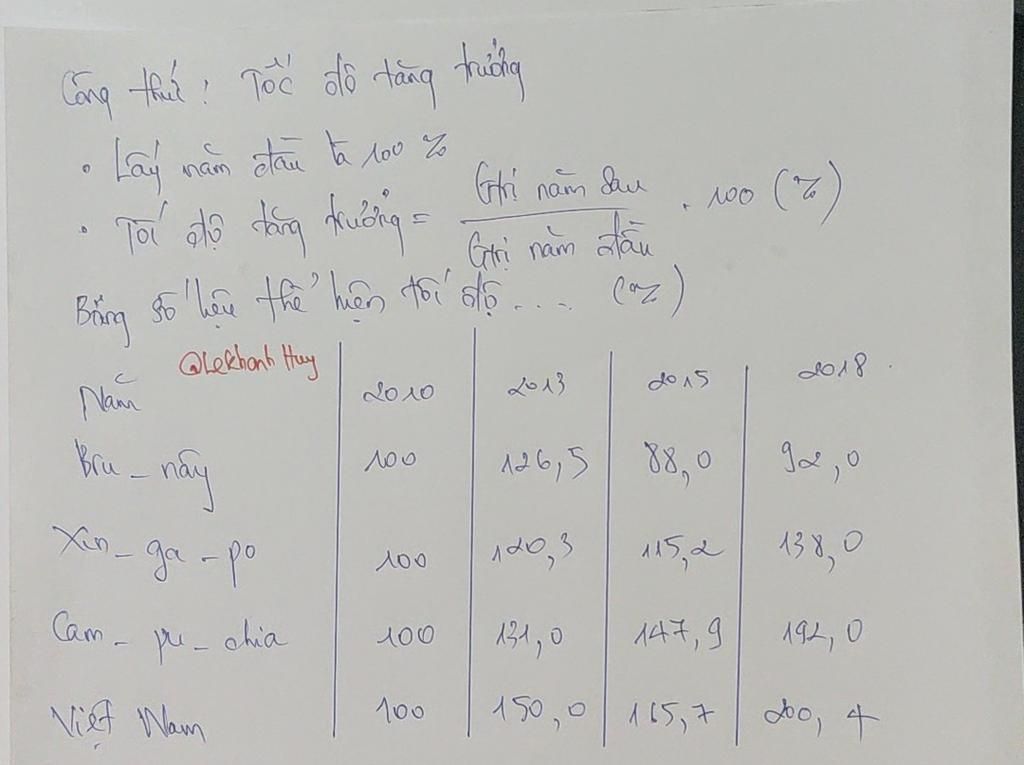 Công thức: Tốc độ tăng trưởng
• Lấy năm đầu là 100 %
• Tốc độ tăng trưởng = Gtrị năm sau / Gtrị năm đầu . 100 (%)
Bảng số liệu thể hiện tốc độ.... (%)
@LeKhanh Huy
Năm 2010 2013 2015 2018
Bru_nây 100 126,5 88,0 92,0
Xin_ga_po 100 120,3 115,2 138,0
Cam_pu_chia 100 131,0 147,9 192,0
Việt Nam 100 150,0 165,7 200,4